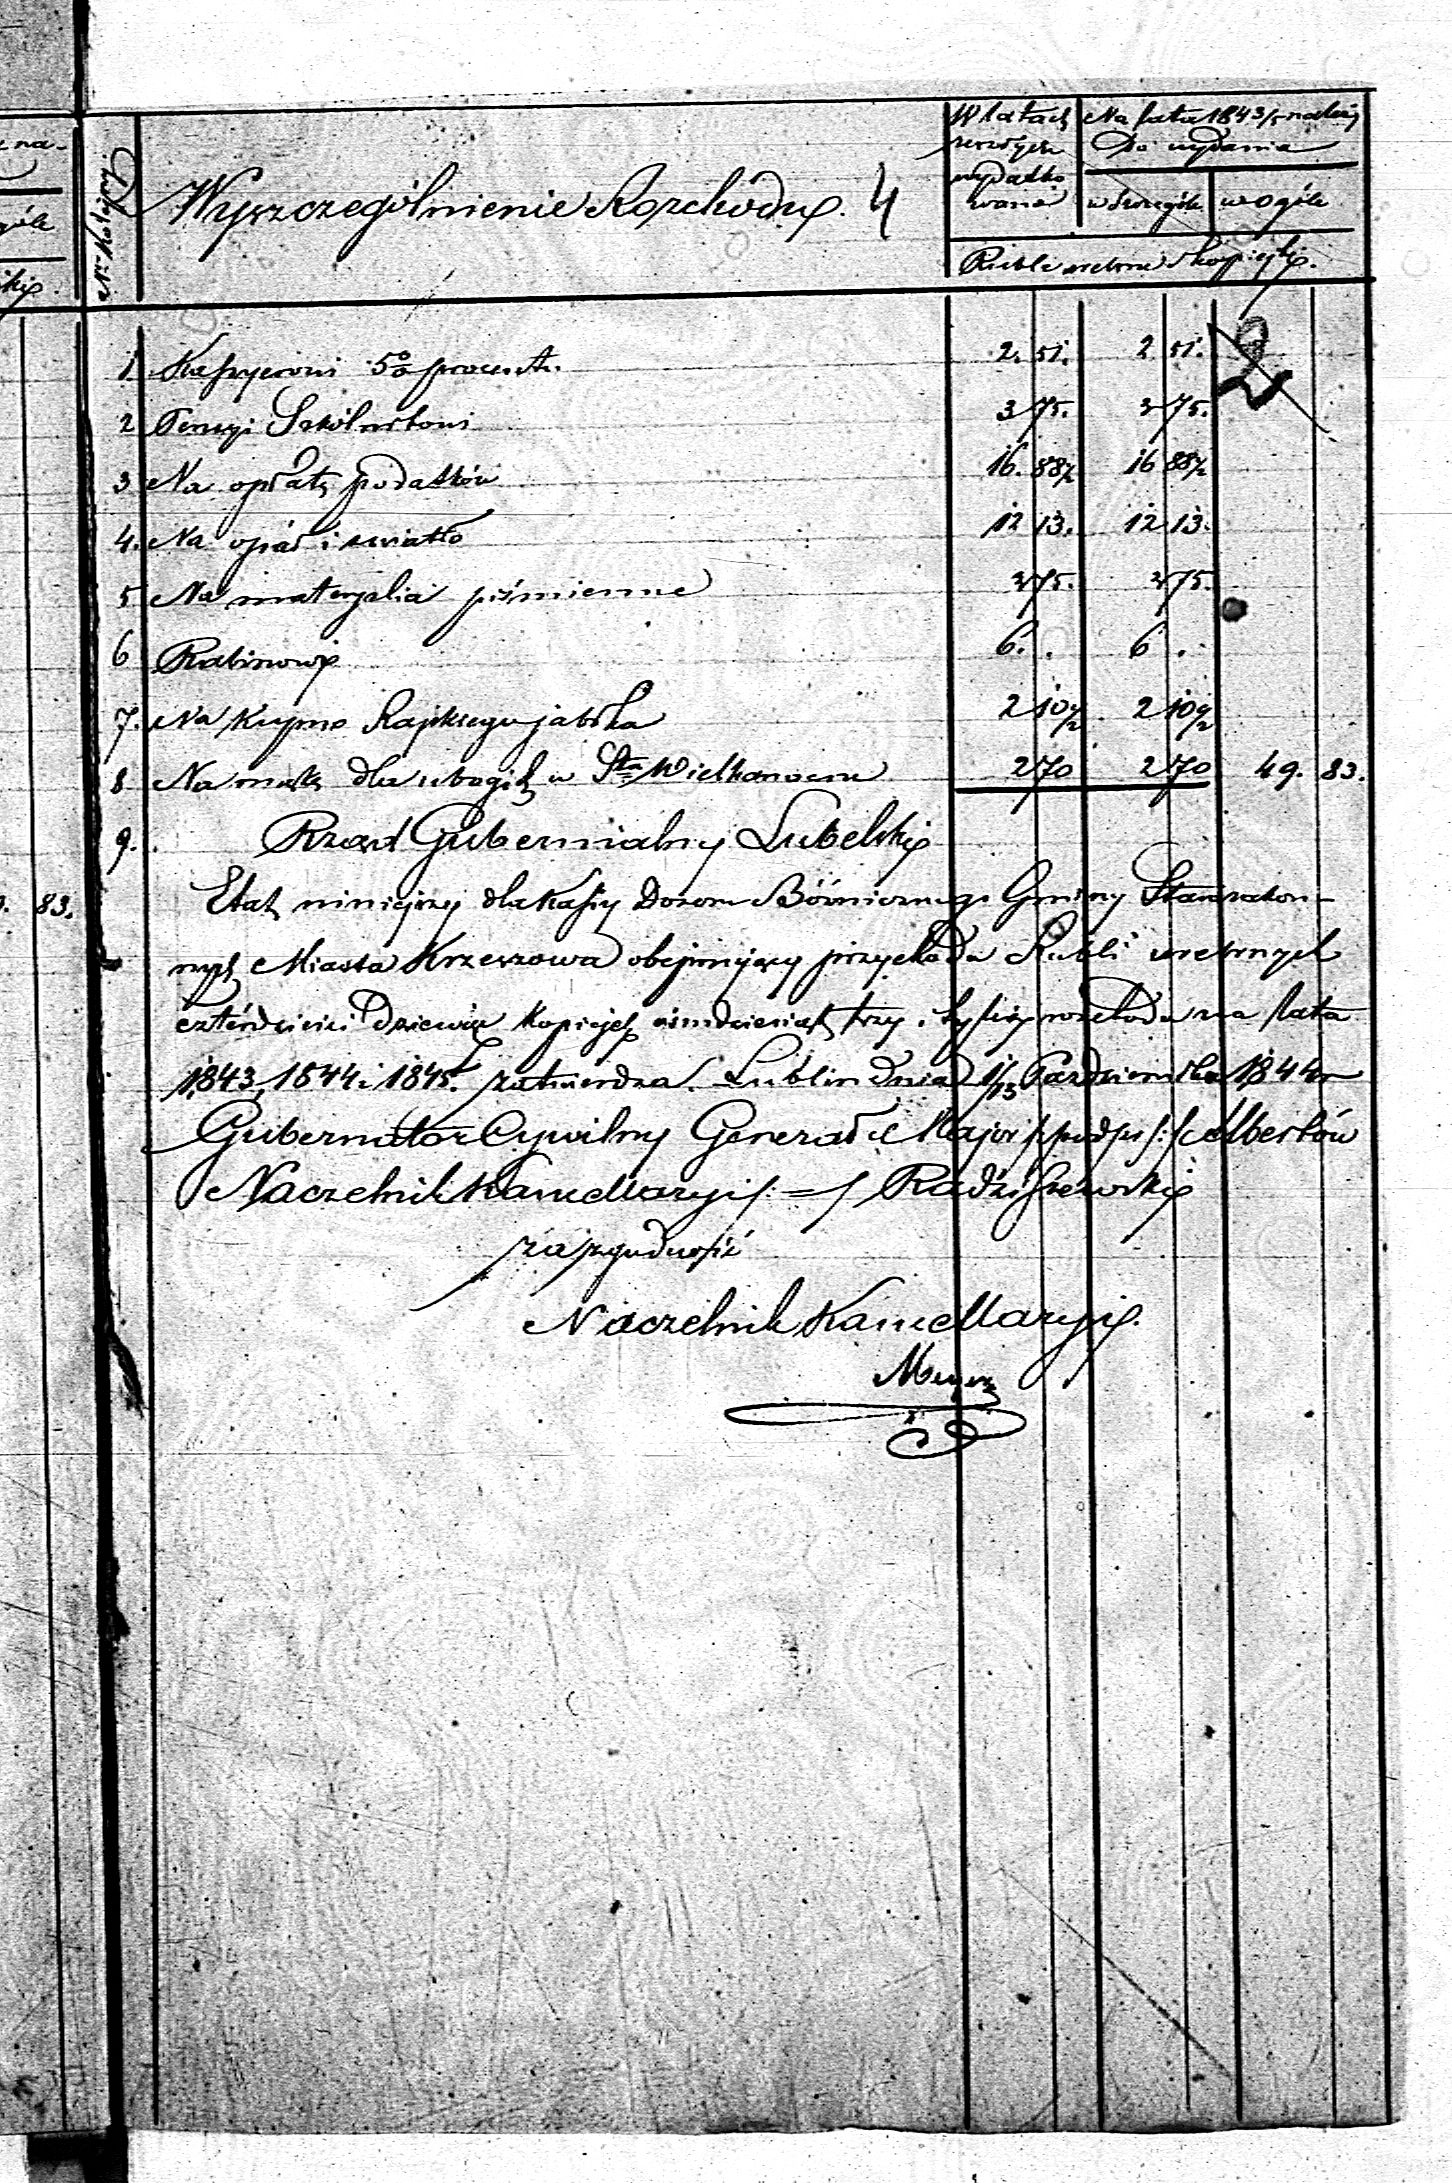 na-
góle
Nr Kolejny
Wyszczególnienie Rozchodu. 4
W latach zeszłych wydatkowano
Na lata 1843/5 należy
Do wydania
w szczególe
w ogóle
Ruble srebrne i kopiejki.
1. Kassyerowi 5% procentu. 2. 51. 2 51.
2 Tenuy: Szkólnikowi 3 75. 3 75.
3 Na opłatę podatków 16. 88½ 16 88½
4. Na opał i swiatło 12 13. 12 13.
5 Na materyalia piśmienne 3 75. 3 75.
6 Rabinowi 6. . 6 .
7. Na kupno Rajskiego jabłka 2 10½ 2 10½
8 Na mąkę dla ubogich w Sta Wielkanocne 2 70 2 70 49. 83.
9. Rząd Gubernialny Lubelski
83. Etat niniejszy dla Kassy Dozoru Bóżnicznego Gminy Starozakon-
nych Miasta Krzeszowa obejmujący przychodu Rubli srebrnych
czterdzieści dziewięć kopiejek ośmdziesiąt trzy i tyleż rozchodu na lata
1843, 1844 i 1845. zatwierdza. Lublin dnia 1/13 Pazdziernika 1844 r
Gubernator Cywilny Generał Major /:podps:/ Albertów
Naczelnik Kancellaryi /:=/ Radziszewski
za zgodność
Naczelnik Kancellaryi.